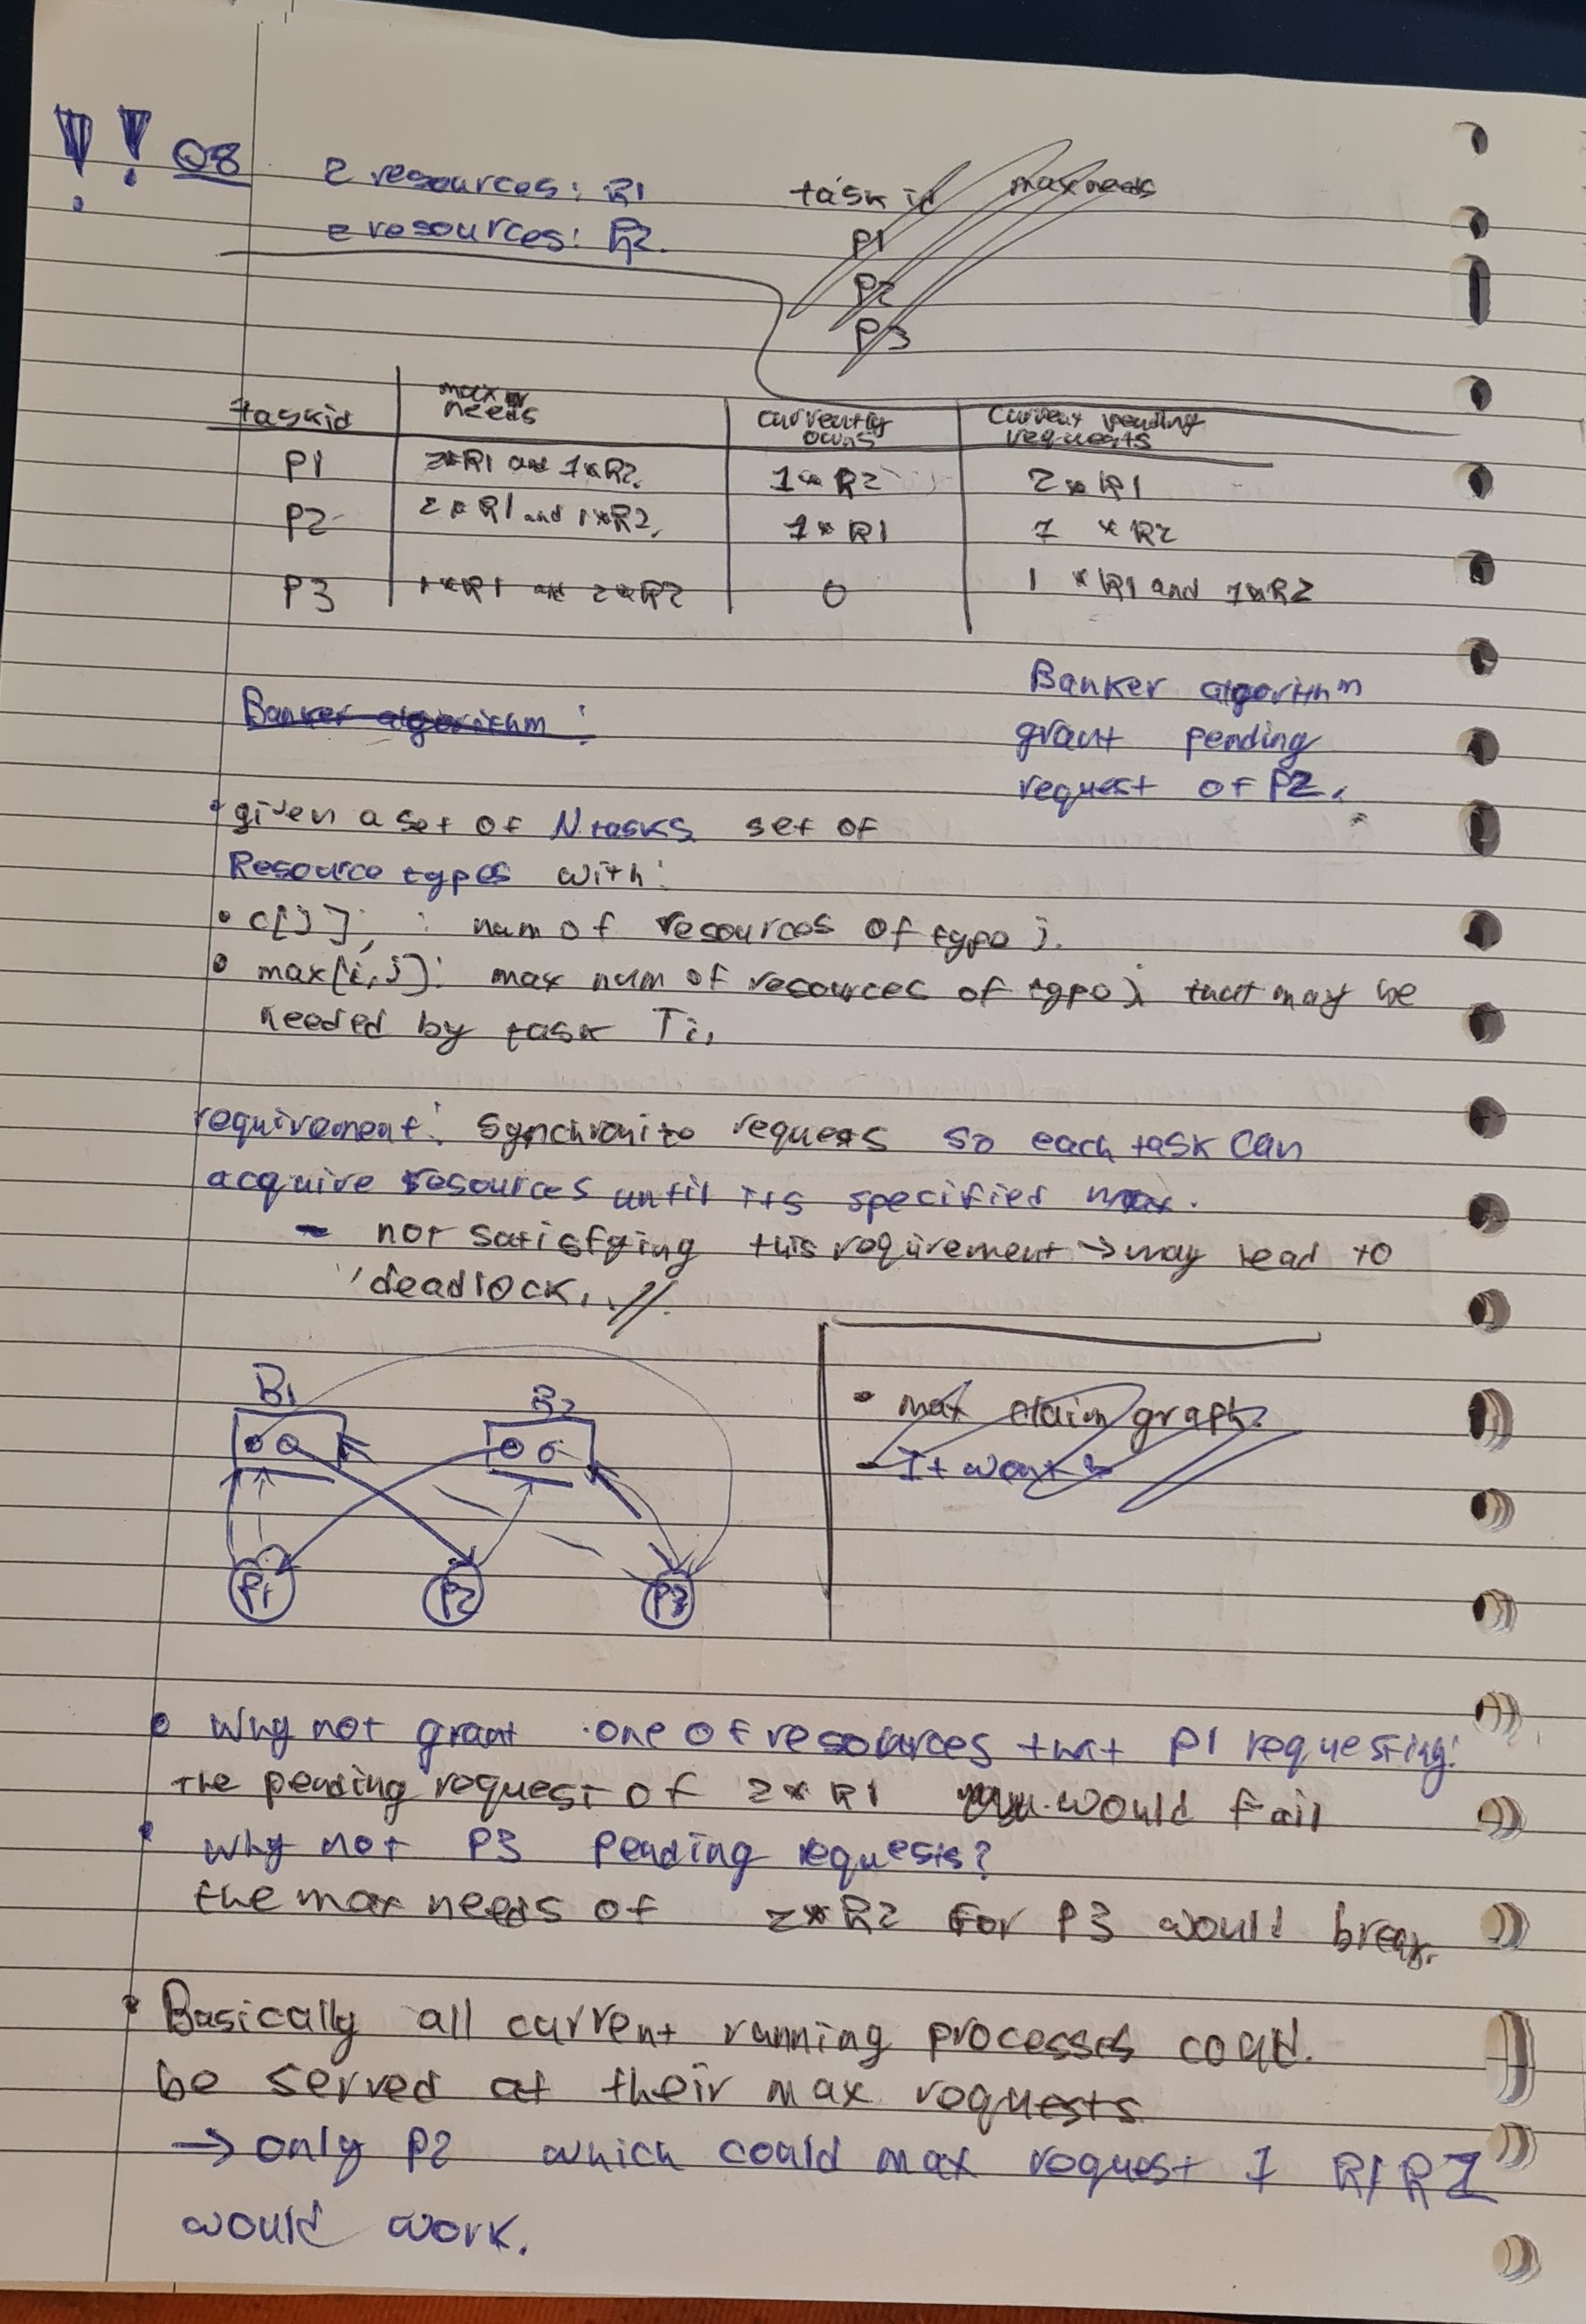 Q8
2 resources: R1
2 resources: R2.
task id max needs
P1
P2
P3
taskid max needs currently owns Current pending requests
P1 2*R1 and 1*R2. 1*R2 2*R1
P2 2*R1 and 1*R2. 1*R1 1*R2
P3 1*R1 and 2*R2 0 1*R1 and 1*R2
Banker algorithm:
Banker algorithm
grant pending
request of P2.
• given a set of N tasks set of
Resource types with:
• c[j]; : num of resources of type j.
• max[i,j]: max num of resources of type j that may be
needed by task Ti.
requirement: Synchronize requests so each task can
acquire resources until its specified max.
- not satisfying this requirement → may lead to
deadlock.
R1 R2
P1 P2 P3
• max claim graph.
- It
• Why not grant one of resources that P1 requesting:
The pending request of 2*R1 would fail
• Why not P3 pending requests?
the max needs of 2*R2 for P3 would break.
• Basically all current running processes
be served at their max requests
→ only P2 which could max request 1 R1
would work.